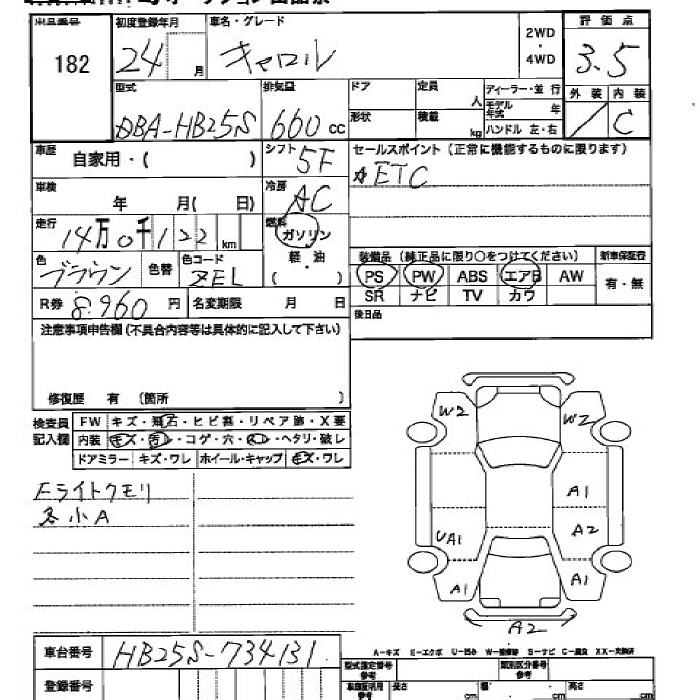 出品番号 初度登録年月 車名・グレード 2WD・4WD 評価点
182 24 月 キャロル 3.5
型式 排気量 ドア 定員 人 ディーラー・並行 外装 内装
DBA-HB25S 660 cc 形状 積載 kg モデル年式 年 / C
ハンドル 左・右
車歴 自家用・( ) シフト 5F セールスポイント(正常に機能するものに限ります)
車検 年 月( 日) 冷房 AC ☆ETC
走行 14万0千122 km 燃料 ガソリン
軽・油
( )
色 ブラウン 色替 色コード ZEL 装備品(純正品に限り○をつけてください) 新車保証書
PS PW ABS エアB AW 有・無
R券 8,960 円 名変期限 月 日 SR ナビ TV カワ
注意事項申告欄(不具合内容等は具体的に記入して下さい) 後日品
修復歴 有 (箇所 )
検査員記入欄 FW キズ・飛石・ヒビ割・リペア跡・X要
内装 キズ・汚・コゲ・穴・・ヘタリ・破レ
ドアミラー キズ・ワレ ホイール・キャップ キズ・ワレ
W2 W2
Fライトクモリ A1
各小A A2
UA1
A1 A1
A2
A-キズ E-エクボ U-凹み W-補修跡 S-サビ C-腐食 XX-交換済
車台番号 HB25S-734131 型式指定番号 参考 類別区分番号 参考
登録番号 車庫証明用 参考 長さ cm 幅 cm 高さ cm